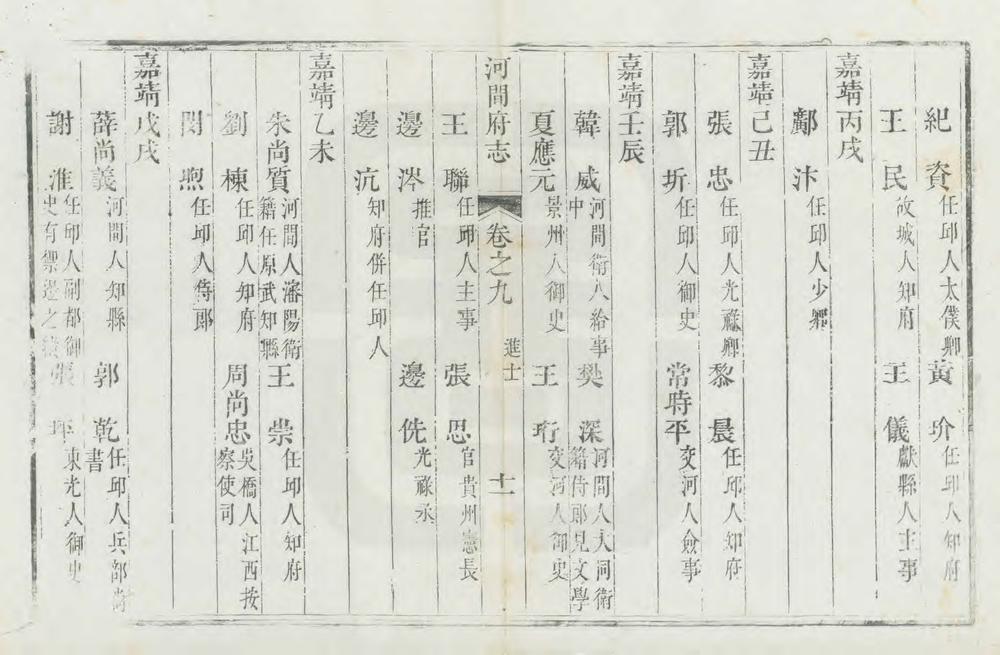 紀資任邱人太僕卿 黃玠任邱人知府
王民故城人知府 王儀獻縣人主事
嘉靖丙戌
鄺汴任邱人少卿
嘉靖己丑
張忠任邱人光祿卿 黎晨任邱人知府
郭圻任邱人御史 常時平交河人僉事
嘉靖壬辰
韓威河間衛人給事中 樊深河間人大同衛籍侍郎見文學
夏應元景州人御史 王珩交河人御史
河間府志 卷之九 進士 十一
王聯任邱人主事 張思官貴州憲長
邊涔推官 邊侁光祿丞
邊沆知府併任邱人
嘉靖乙未
朱尚質河間人瀋陽衛籍任原武知縣 王崇任邱人知府
劉棟任邱人知府 周尚忠吳橋人江西按察使司
閔煦任邱人侍郎
嘉靖戊戌
薛尚義河間人知縣 郭乾任邱人兵部尚書
謝淮任邱人副都御史有禦邊之 張坪東光人御史